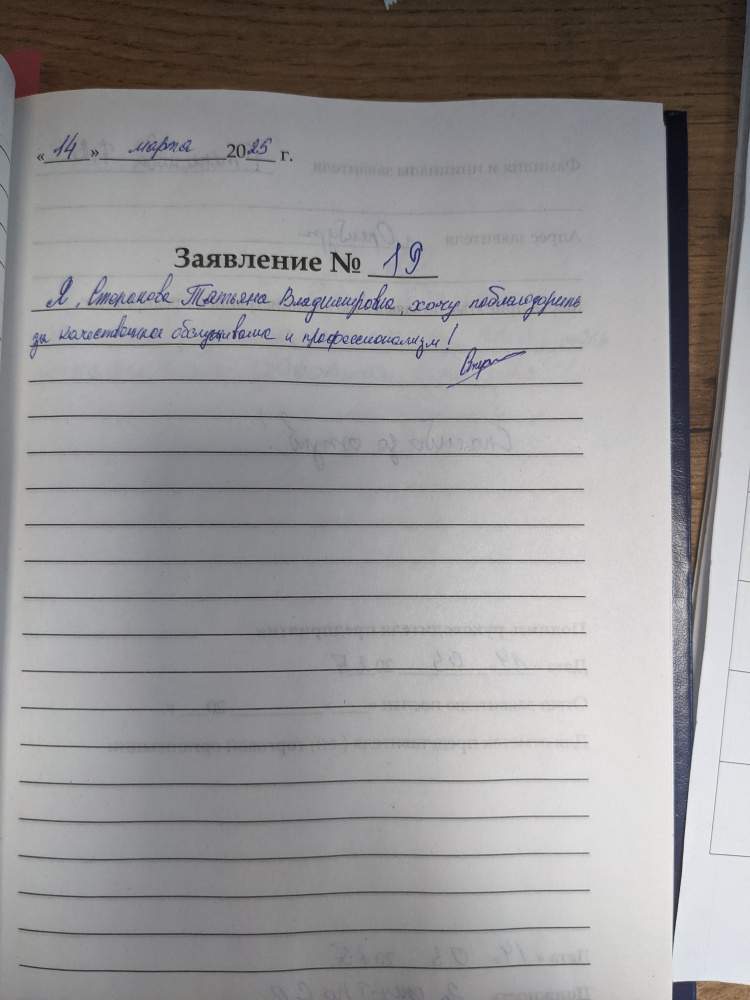 «14» марта 2025 г.
Заявление № 19
Я, Сторакова Татьяна Владимировна, хочу поблагодарить
за качественное обслуживание и профессионализм!